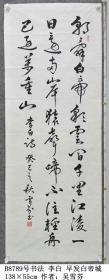 朝辭白帝彩雲間千里江陵一
日還两岸猿聲啼不住輕舟
已過萬重山
李白詩 癸巳之秋 雪芬書
B8789号书法 李白 早发白帝城
138×55cm 作者：吴雪芬